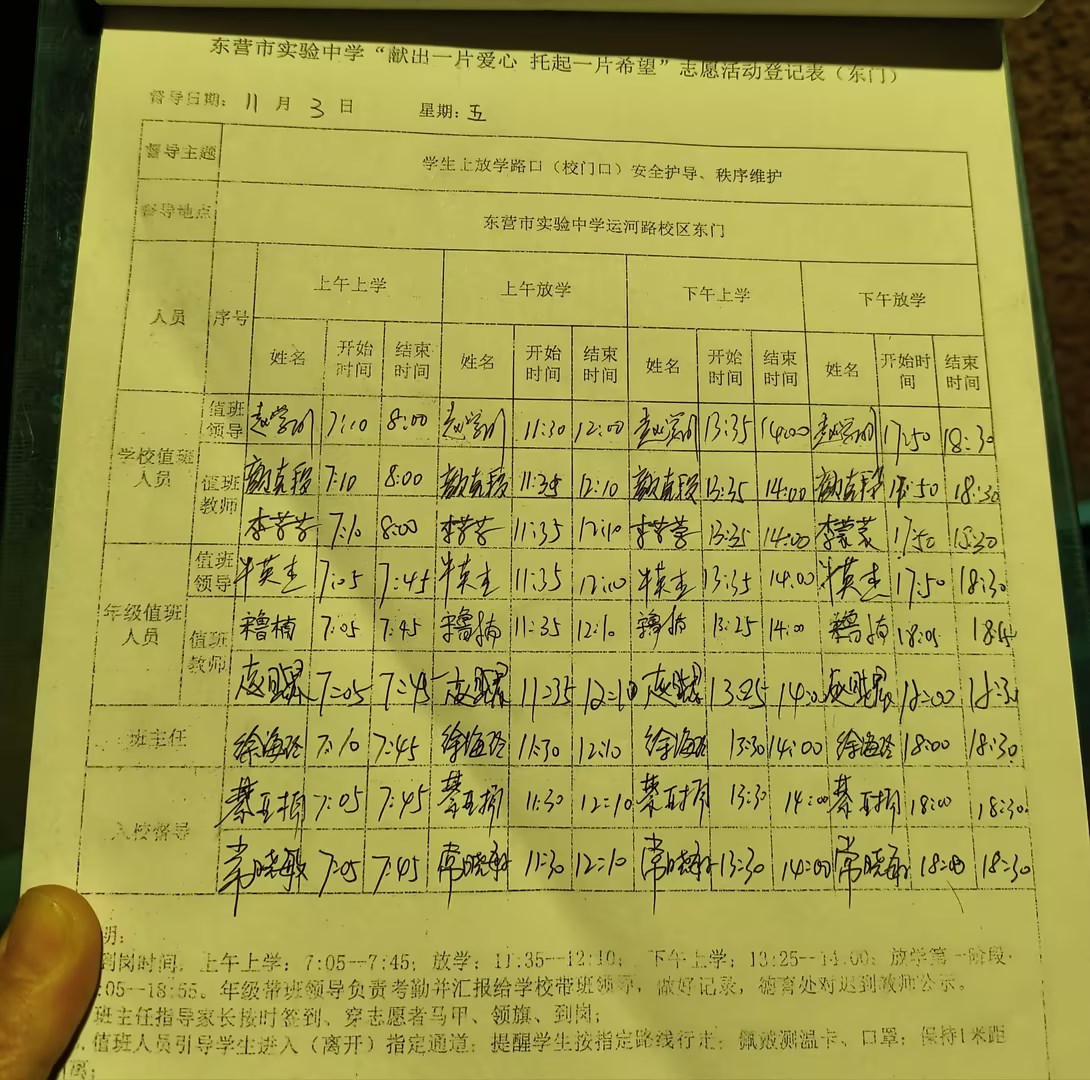 东营市实验中学“献出一片爱心 托起一片希望”志愿活动登记表（东门）
督导日期： 11 月 3 日 星期：五
督导主题 学生上放学路口（校门口）安全护导、秩序维护
督导地点 东营市实验中学运河路校区东门
人员 序号 上午上学 上午放学 下午上学 下午放学
姓名 开始时间 结束时间 姓名 开始时间 结束时间 姓名 开始时间 结束时间 姓名 开始时间 结束时间
学校值班人员 值班领导 7:10 8:00 11:30 12:00 13:35 14:00 17:50 18:30
值班教师 7:10 8:00 11:35 12:10 13:35 14:00 18:30
7:10 8:00 11:35 12:10 13:35 14:00 17:50 18:30
年级值班人员 值班领导 牛英杰 7:05 7:45 牛英杰 11:35 12:10 牛英杰 13:35 14:00 牛英杰 17:50 18:30
值班教师 7:05 7:45 11:35 12:10 13:25 14:00 18:05
7:05 7:45 11:35 12:10 13:25 14:00 18:00 18:30
班主任 徐海玲 7:10 7:45 徐海玲 11:30 12:10 徐海玲 13:30 14:00 徐海玲 18:00 18:30
入校督导 7:05 7:45 11:30 12:10 13:30 14:00 18:00 18:30
常晓敏 7:05 7:45 常晓敏 11:30 12:10 常晓敏 13:30 14:00 常晓敏 18:00 18:30
明：
到岗时间，上午上学：7:05--7:45；放学：11:35--12:10； 下午上学：13:25--14:00；放学第一阶段
:05--18:55。年级带班领导负责考勤并汇报给学校带班领导，做好记录，德育处对迟到教师公示。
班主任指导家长按时签到、穿志愿者马甲、领旗、到岗；
值班人员引导学生进入（离开）指定通道；提醒学生按指定路线行走；佩戴测温卡、口罩；保持1米距
离；